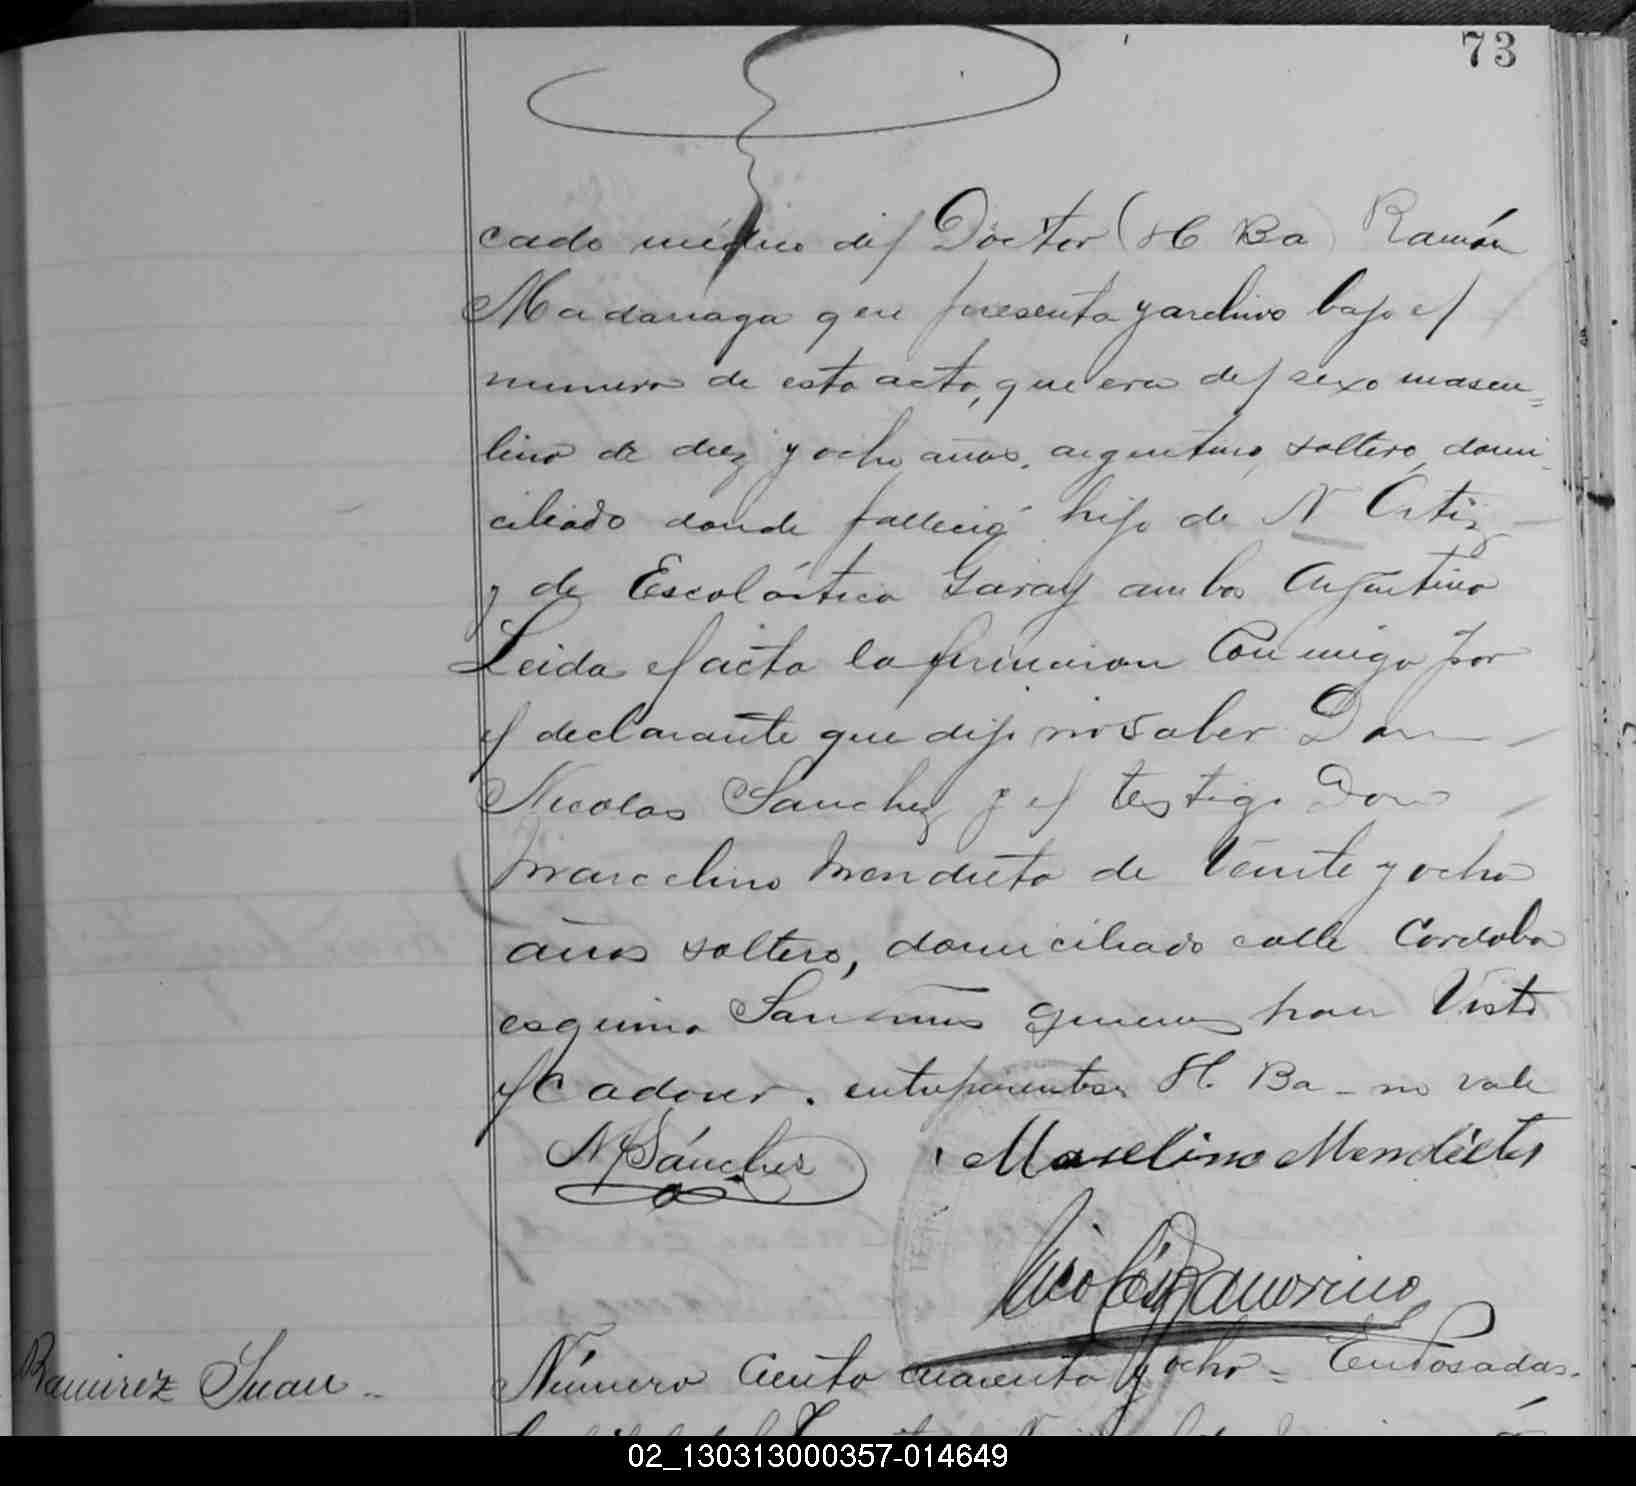 73
cado médico del Doctor (H Ba) Ramón
Madariaga que presenta y archivo bajo el
numero de esta acta, que era del sexo mascu=
lino de diez y ocho años, argentino, soltero, domi
ciliado donde falleció hijo de N Ortiz
y de Escolástica Garay ambos Argentino
Leida el acta la firmaron Conmigo por
el declarante que dijo no saber Don
Nicolas Sanchez y el testigo Don
Marcelino Mendieta de Veinte y ocho
años soltero, domiciliado calle Cordoba
esquina quienes han Visto
el Cadaver. entreparentesis H. Ba - no vale
N Sánchez Marselino Mendieta
Nicolás
Ramirez Juan Número Ciento cuarenta y ocho = En Posadas.
02_130313000357-014649